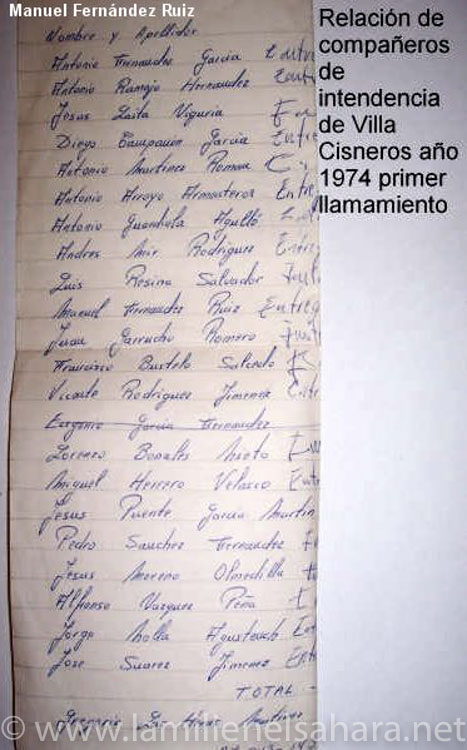 Manuel Fernández Ruiz
Relación de
compañeros
de
intendencia
de Villa
Cisneros año
1974 primer
llamamiento
Nombre y Apellidos
Antonio Fernandez Garcia
Antonio Hernandez
Jesus Laita Viguria
Diego Campaun Garcia Entre
Antonio Martinez Roman
Antonio Arroyo Armasteros Entre
Antonio Guardiola Agulló
Andres Mir Rodriguez Entreg
Luis Resina Salvador
Manuel Fernandez Ruiz Entreg
Juan Garrucho Romero
Francisco Bustelo Salcedo
Vicente Rodriguez Jimenez Entre
Eugenio Garcia Hernandez
Lorenzo Nieto
Miguel Herrero Velasco Entre
Jesus Puente Garcia Martin
Pedro Sanchez Fernandez
Jesus Moreno Olmedilla
Alfonso Vazquez Peña
Jorge Molla
Jose Suarez Jimenez Entre
TOTAL -
Gregorio Martinez
© www.lamilienelsahara.net